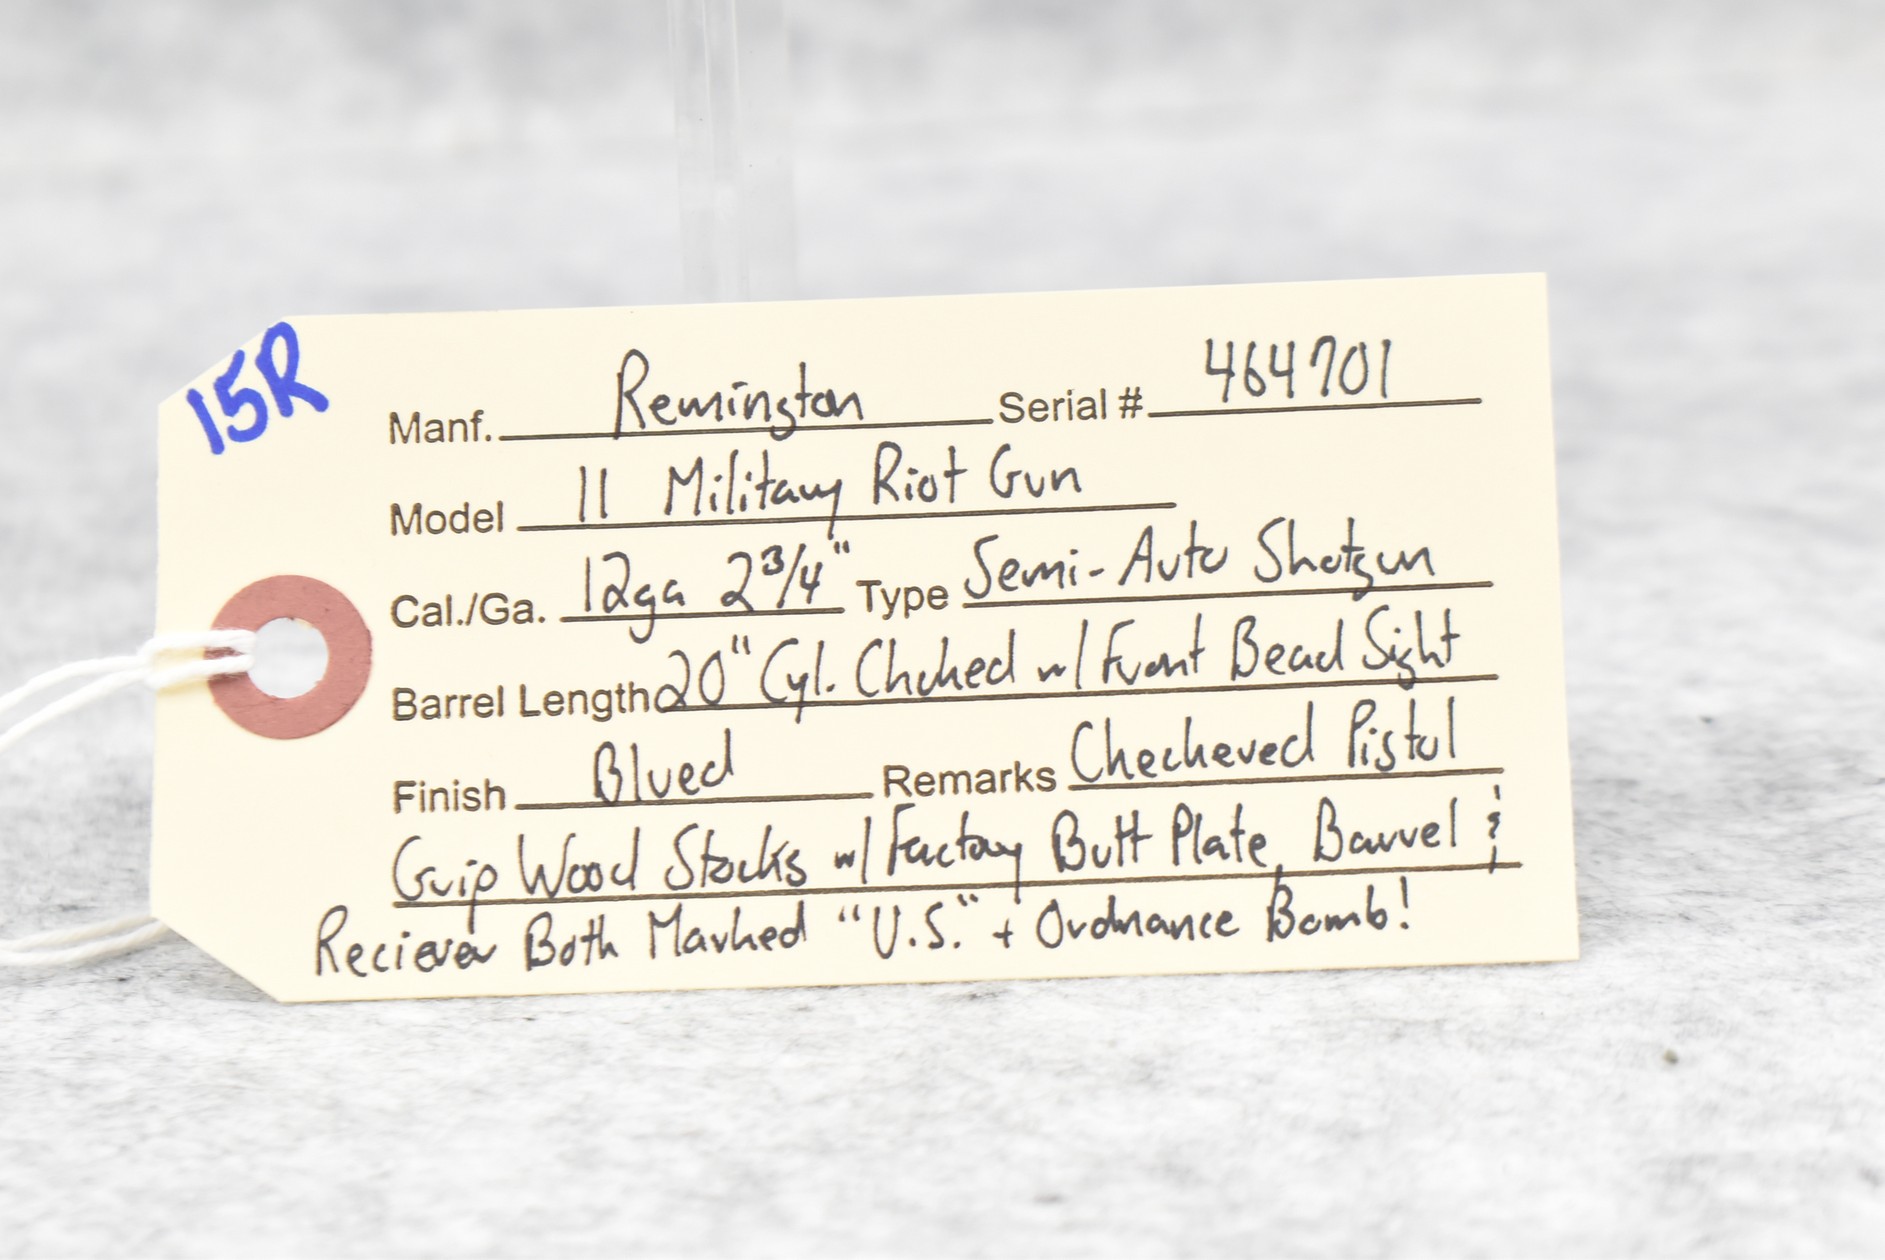 15R
Manf. Remington Serial # 464701
Model 11 Military Riot Gun
Cal./Ga. 12ga 2 3/4" Type Semi-Auto Shotgun
Barrel Length 20" Cyl. Choked w/ Front Bead Sight
Finish Blued Remarks Checkered Pistol
Grip Wood Stocks w/ Factory Butt Plate, Barrel &
Reciever Both Marked "U.S." + Ordnance Bomb!